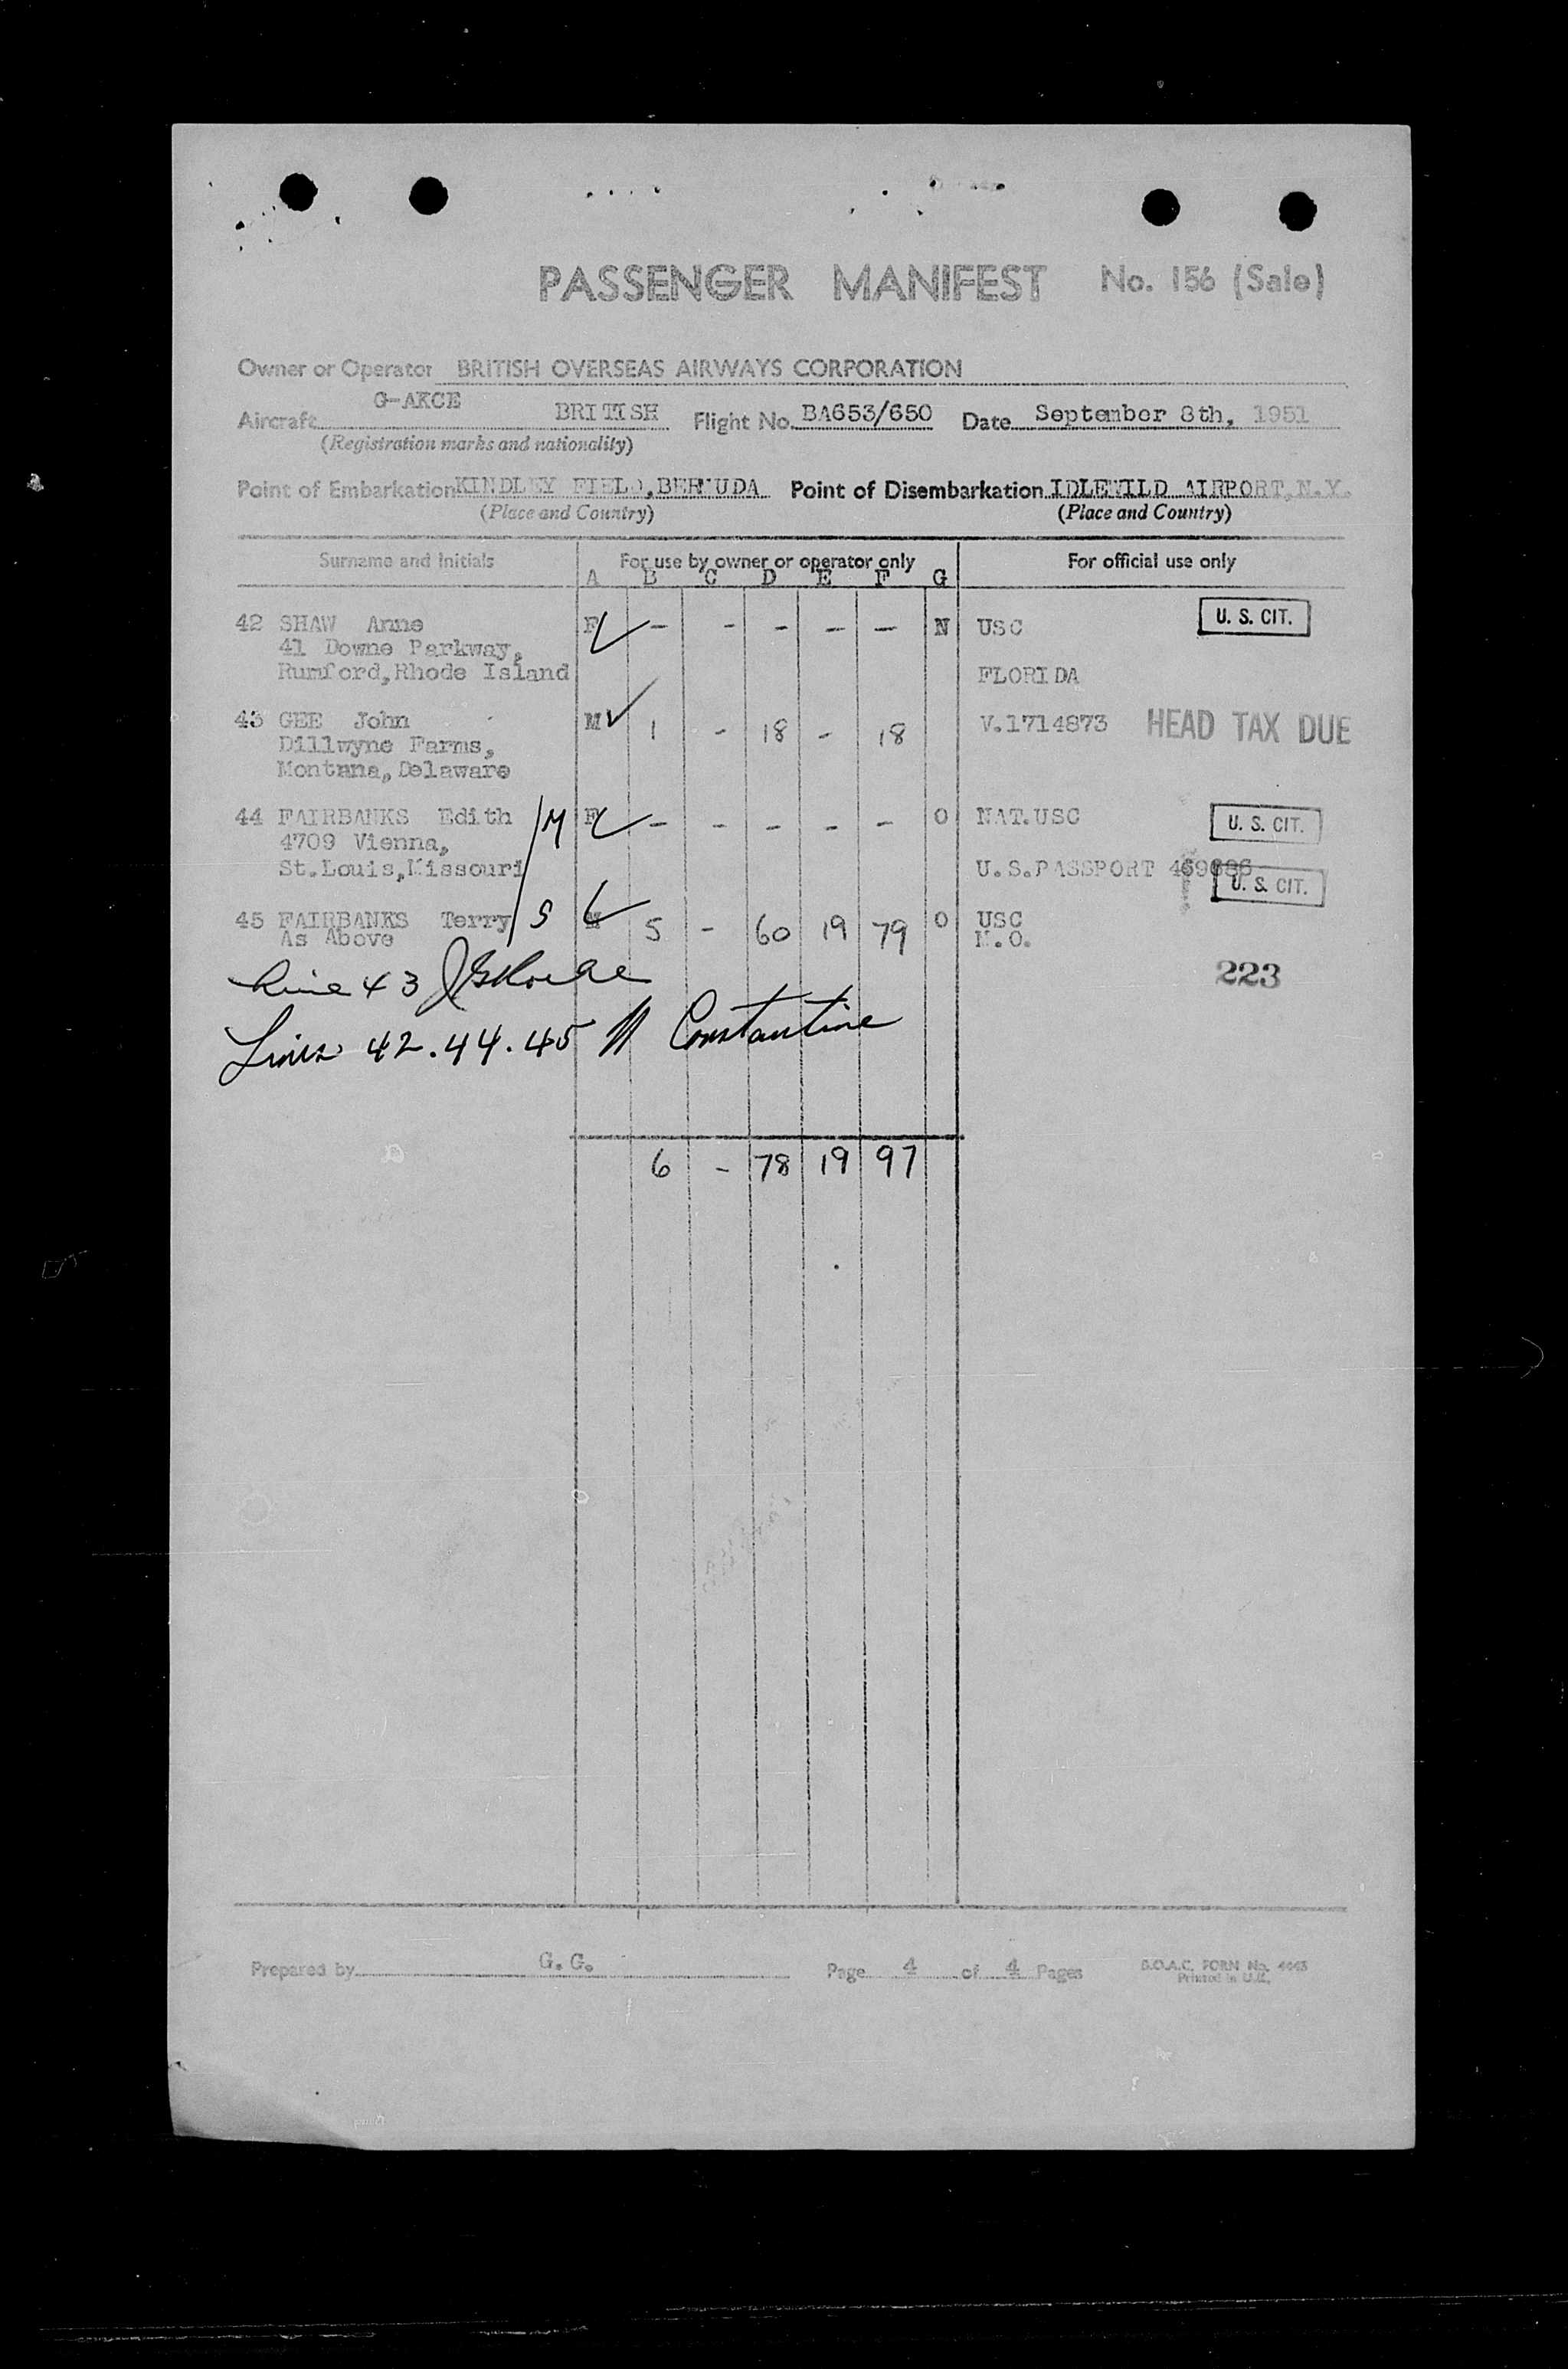 PASSENGER MANIFEST No. 156 (Sale)
Owner or Operator BRITISH OVERSEAS AIRWAYS CORPORATION
Aircraft G-AKCE BRITISH Flight No. BA653/650 Date September 8th, 1951
(Registration marks and nationality)
Point of Embarkation KINDLEY FIELD, BERMUDA Point of Disembarkation IDLEWILD AIRPORT, N.Y.
(Place and Country) (Place and Country)
Surname and Initials For use by owner or operator only For official use only
A B C D E F G
42 SHAW Anne F - - - - - N USC U. S. CIT.
41 Downe Parkway,
Rumford, Rhode Island FLORIDA
43 GEE John M 1 - 18 - 18 V.1714873 HEAD TAX DUE
Dillwyne Farms,
Montana, Delaware
44 FAIRBANKS Edith /M F - - - - - O NAT.USC U. S. CIT.
4709 Vienna,
St.Louis, Missouri U.S.PASSPORT U. S. CIT.
45 FAIRBANKS Terry /S M 5 - 60 19 79 O USC
As Above N.O.
Line 43 223
Lines 42.44.45 Constantine
6 - 78 19 97
Prepared by G.G. Page 4 of 4 Pages B.O.A.C. FORM No. 4443
Printed in U.K.